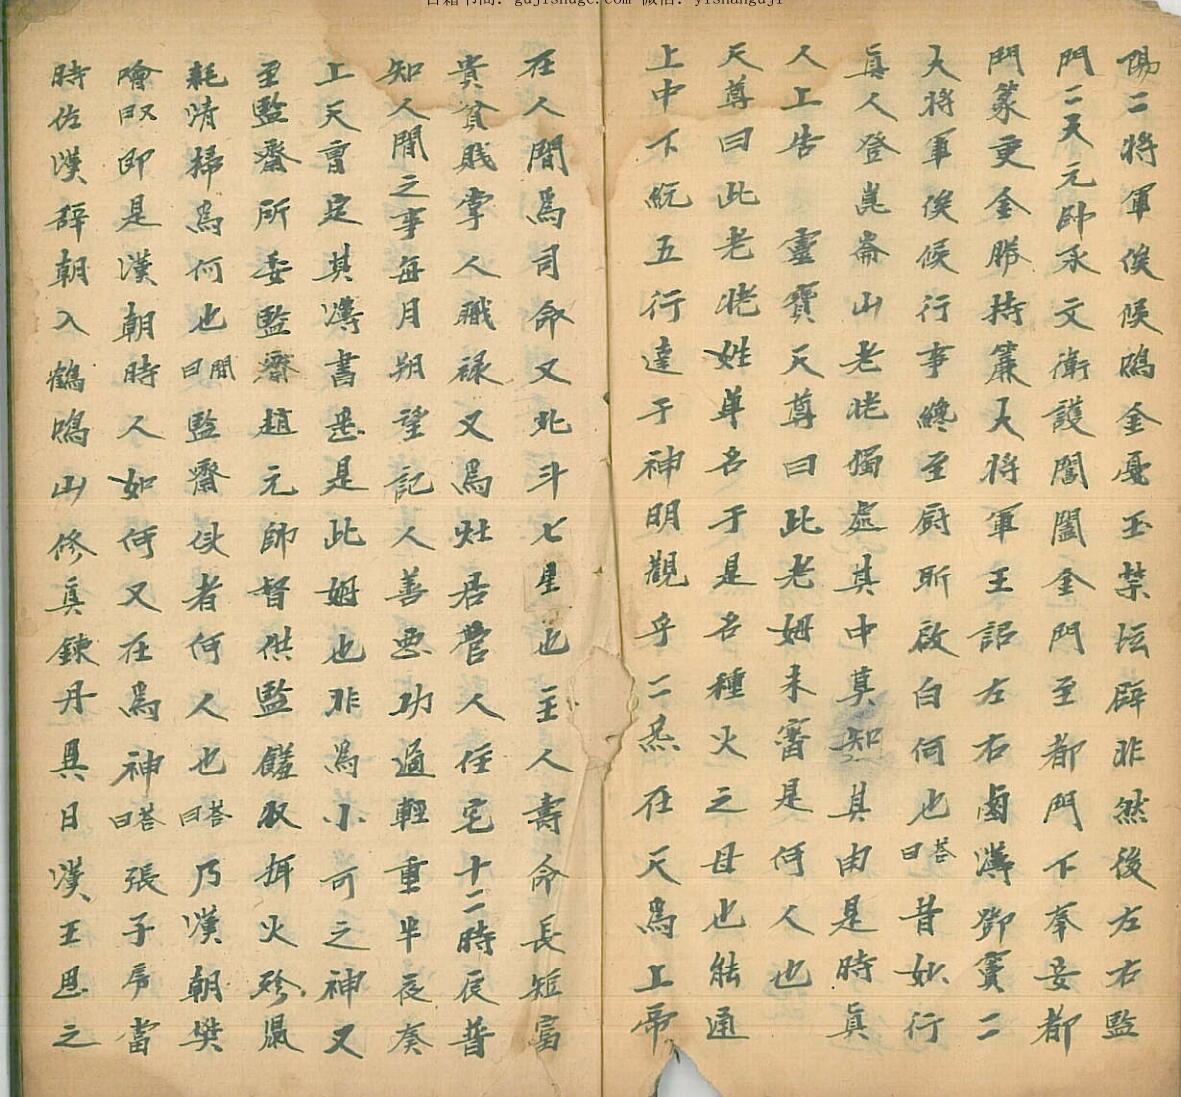 古籍书阁：gujishuge.com 微信：yishanguji
陽二將軍俟候鳴金戞玉禁坛辟非然後左右監
門二天元帥承文衛護閶闔金門至都門下奉妾都
門篆更金勝持簾大將軍王詔左右鹵簿鄧竇二
大將軍俟候行事終至厨所啟白何也答曰昔妙行
真人登崑崙山老姥獨處其中莫知其由是時真
人上告靈寶天尊曰此老姆未審是何人也
天尊曰此老姥姓单名于是名種火之母也能通
上中下統五行達于神明觀乎二炁在天為上帝
在人間為司命又北斗七星也主人壽命長短富
貴貧賎掌人職祿又為灶君管人住宅十二時辰普
知人間之事每月朔望記人善恶功過輕重半夜奏
上天曹定其簿書悉是此姆也非為小可之神又
至監齋所委監齋趙元帥督供監饈収捍火殄鼠
耗清掃為何也問曰監齋使者何人也答曰乃漢朝樊
噲即是漢朝時人如何又在為神答曰張子房當
時佐漢辞朝入鶴鳴山修真錬丹異日漢王思之